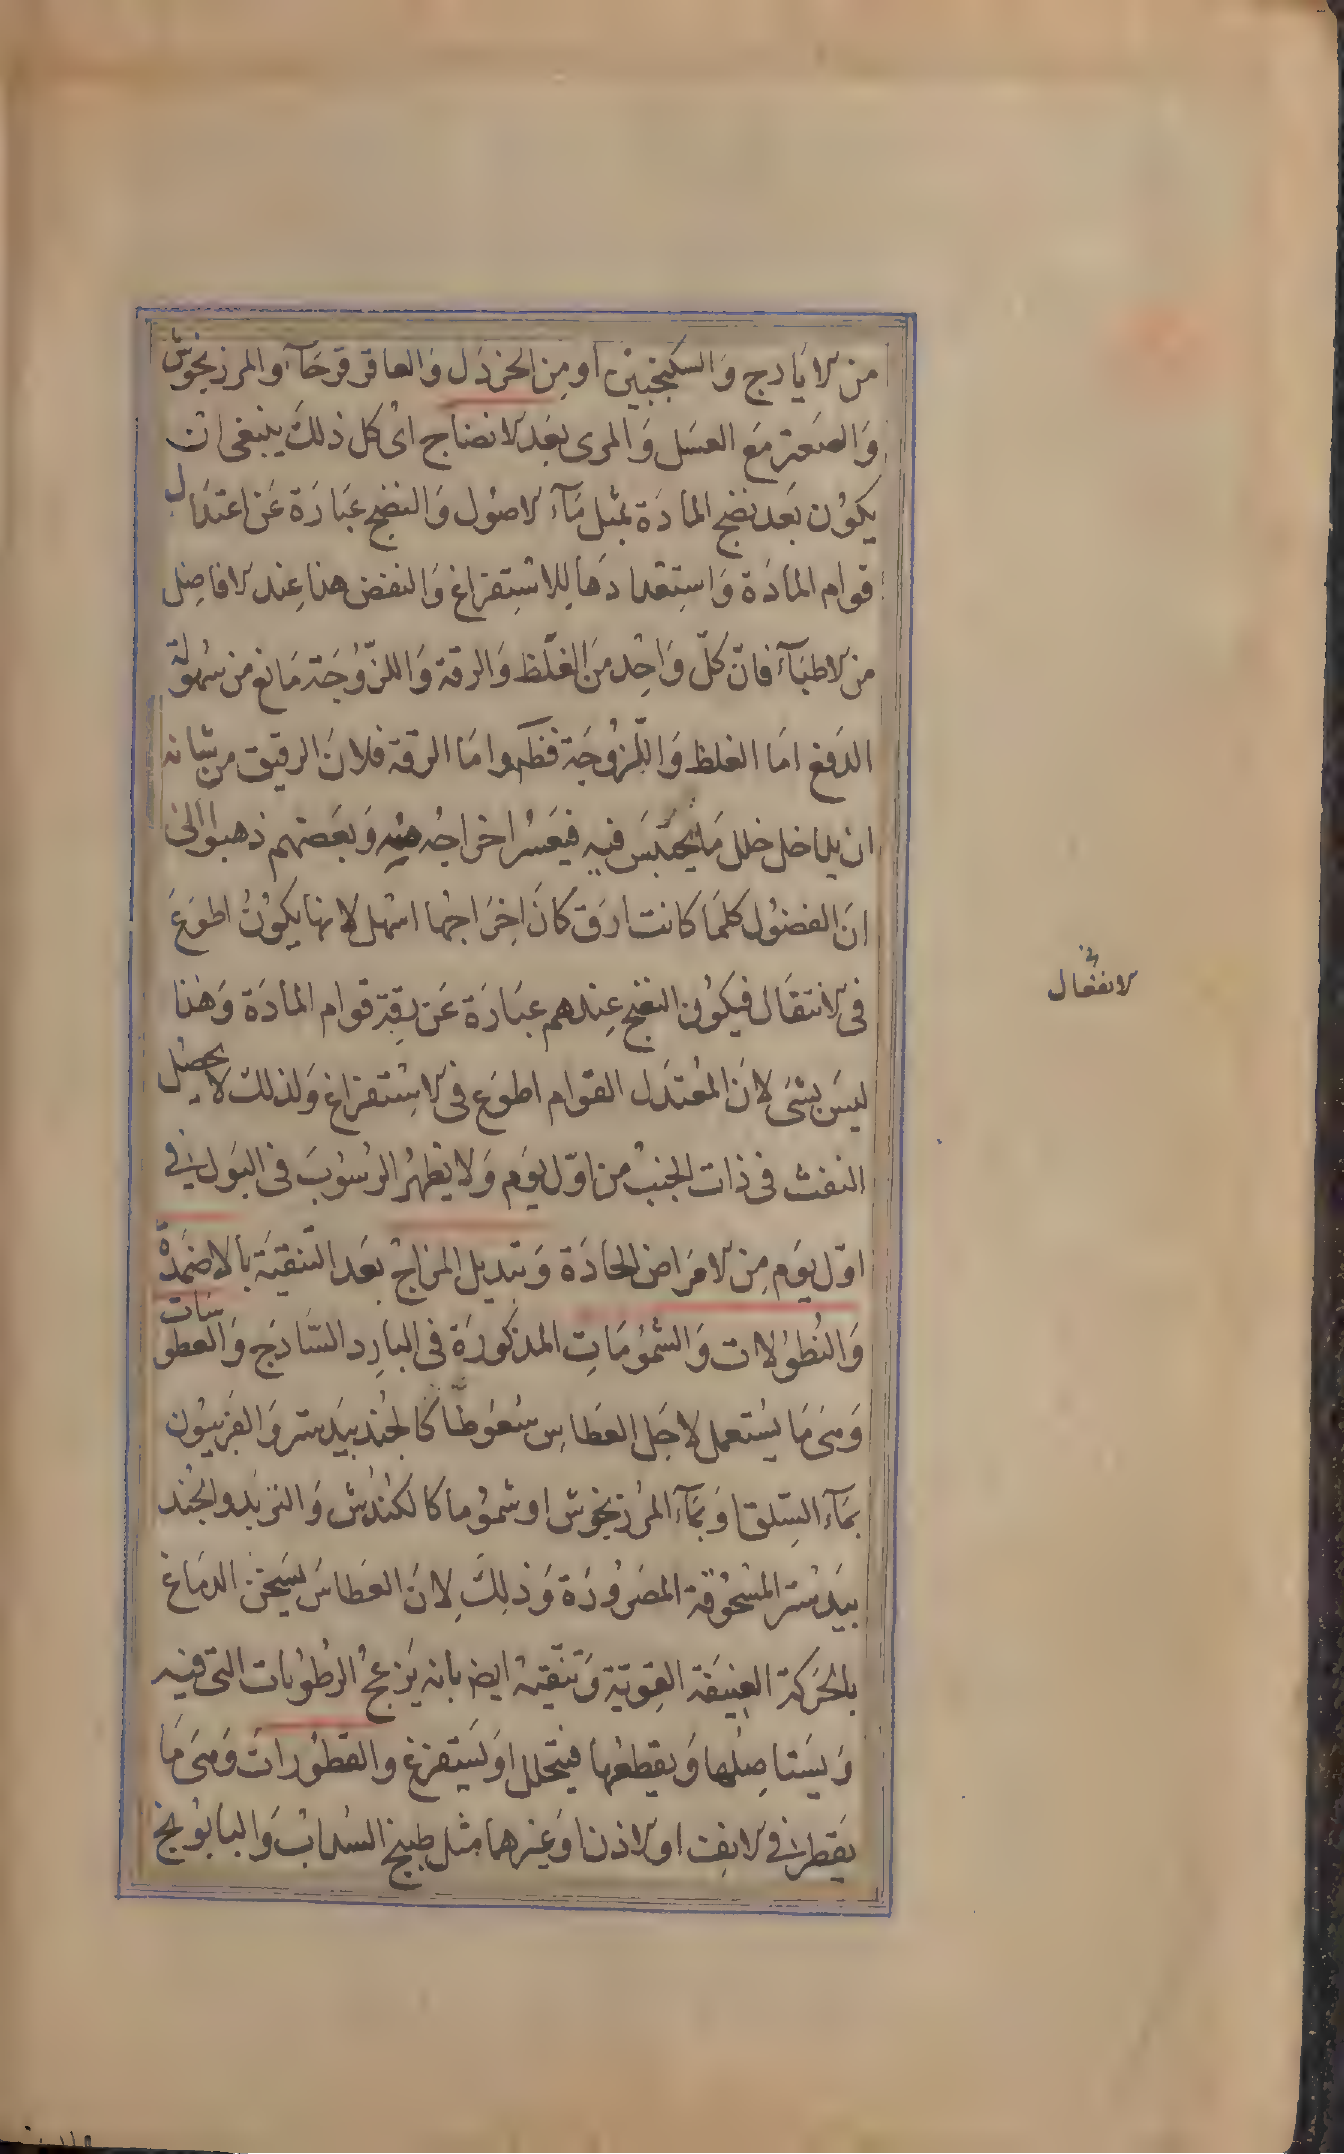 من الايارج والسكنجبين او من الخردل والعاقر قرحآ والمرزنجوش
والصعتر مع العسل والمرى بعد الانضاج اى كل ذلك ينبغى ان
يكون بعد نضج المادة بمثل مآء الاصول والنضج عبارة عن اعتدال
قوام المادة واستعدادها للاستفراغ والنفض هذا عند الافاضل
من الاطبآء فان كل واحد من الغلظ والرقة واللزوجة مانع من سهولة
الدفع اما الغلظ واللزوجة فظهر واما الرقة فلان الرقيق من شانه
ان يداخل خلل ما يحتبس فيه فيعسر اخراجه منه وبعضهم ذهبوا الى
ان الفضول كلما كانت ارق كان اخراجها اسهل لانها يكون اطوع
فى الانتقال فيكون النضج عندهم عبارة عن رقة قوام المادة وهذا
الانفعال
ليس بشى لان المعتدل القوام اطوع فى الاستفراغ ولذلك لا يحصل
النفث فى ذات الجنب من اول يوم ولا يظهر الرسوب فى البول فى
اول يوم من الامراض الحادة وتبديل المزاج بعد التنقية بالاضمدة
والنطولات والشمومات المذكورة فى البارد الساذج والعطوسات
وهى ما يستعمل لاجل العطاس سعوطا كالجندبيدستر والفربيون
بمآء السلق او بمآء المرزنجوش او شموما كالكندش والتربد والجند
بيدستر المسحوقة المصرورة وذلك لان العطاس يسخن الدماغ
بالحركة العنيفة القوية وتنقيته ايضا بانه يزعج الرطوبات التى فيه
ويستاصلها ويقطعها فيتحلل او يستفرغ والقطورات وهى ما
يقطر فى الانف او الاذن او غيرها مثل طبيخ السداب والبابونج